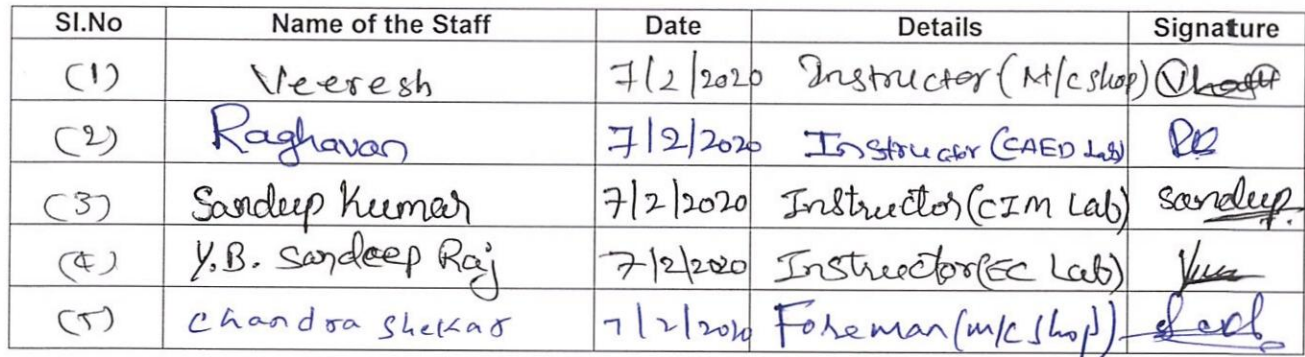 Sl.No Name of the Staff Date Details Signature
(1) Veeresh 7/2/2020 Instructor (M/c shop)
(2) Raghavan 7/2/2020 Instructor (CAED Lab)
(3) Sandeep Kumar 7/2/2020 Instructor (CIM Lab) Sandeep.
(4) Y.B. Sandeep Raj 7/2/2020 Instructor (EC Lab)
(5) Chandra Shekar 7/2/2020 Foreman (m/c shop)